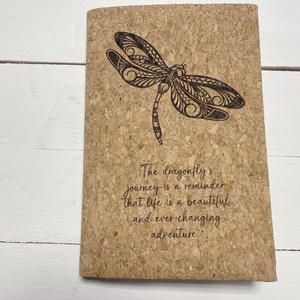 The dragonfly's
journey is a reminder
that life is a beautiful
and ever-changing
adventure.